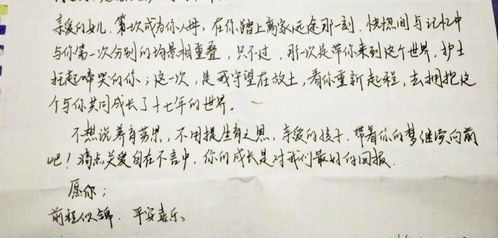 亲爱的女儿，第一次成为你父母，在你踏上离家远途那一刻，恍惚间与记忆中
与你第一次分别的场景相重叠，只不过，那一次是带你来到这个世界，护士
托起啼哭的你；这一次，是我守望在故土，看你重新起程，去拥抱这
个与你共同成长了十七年的世界。
不想说养育劳累，不用提生育之恩，亲爱的孩子，带着你的梦继续向前
吧！满杰关爱自在不言中，你们成长是对我们最好的回报。
愿你：
前程似锦，平安喜乐